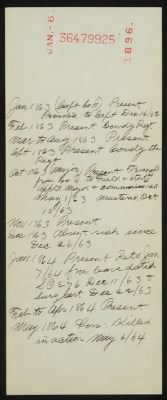 JAN.-6. 36479925 1896.
Jan 1863 (Capt Co F) Present
Promoted to Capt Dec 16/62
Feb 1863 Present Comdg Regt
Mar to Aug 1863 Present
Sept 1863 Present Comdg the
Regt
Oct 1863 (Major) Present Transfd
from Co F to Field & Staff
appt Major & commissioned
May 1/63 mustered Oct
10/63
Nov 1863 Present
Dec 1863 Absent sick since
Dec 26/63
Jan 1864 Present Retd Jan
7/64 from leave dated
SO 546 Dec 11/63 &
surg cert Dec 22/63
Feb to Apr 1864 Present
May 1864 Killed
in action May 6/64